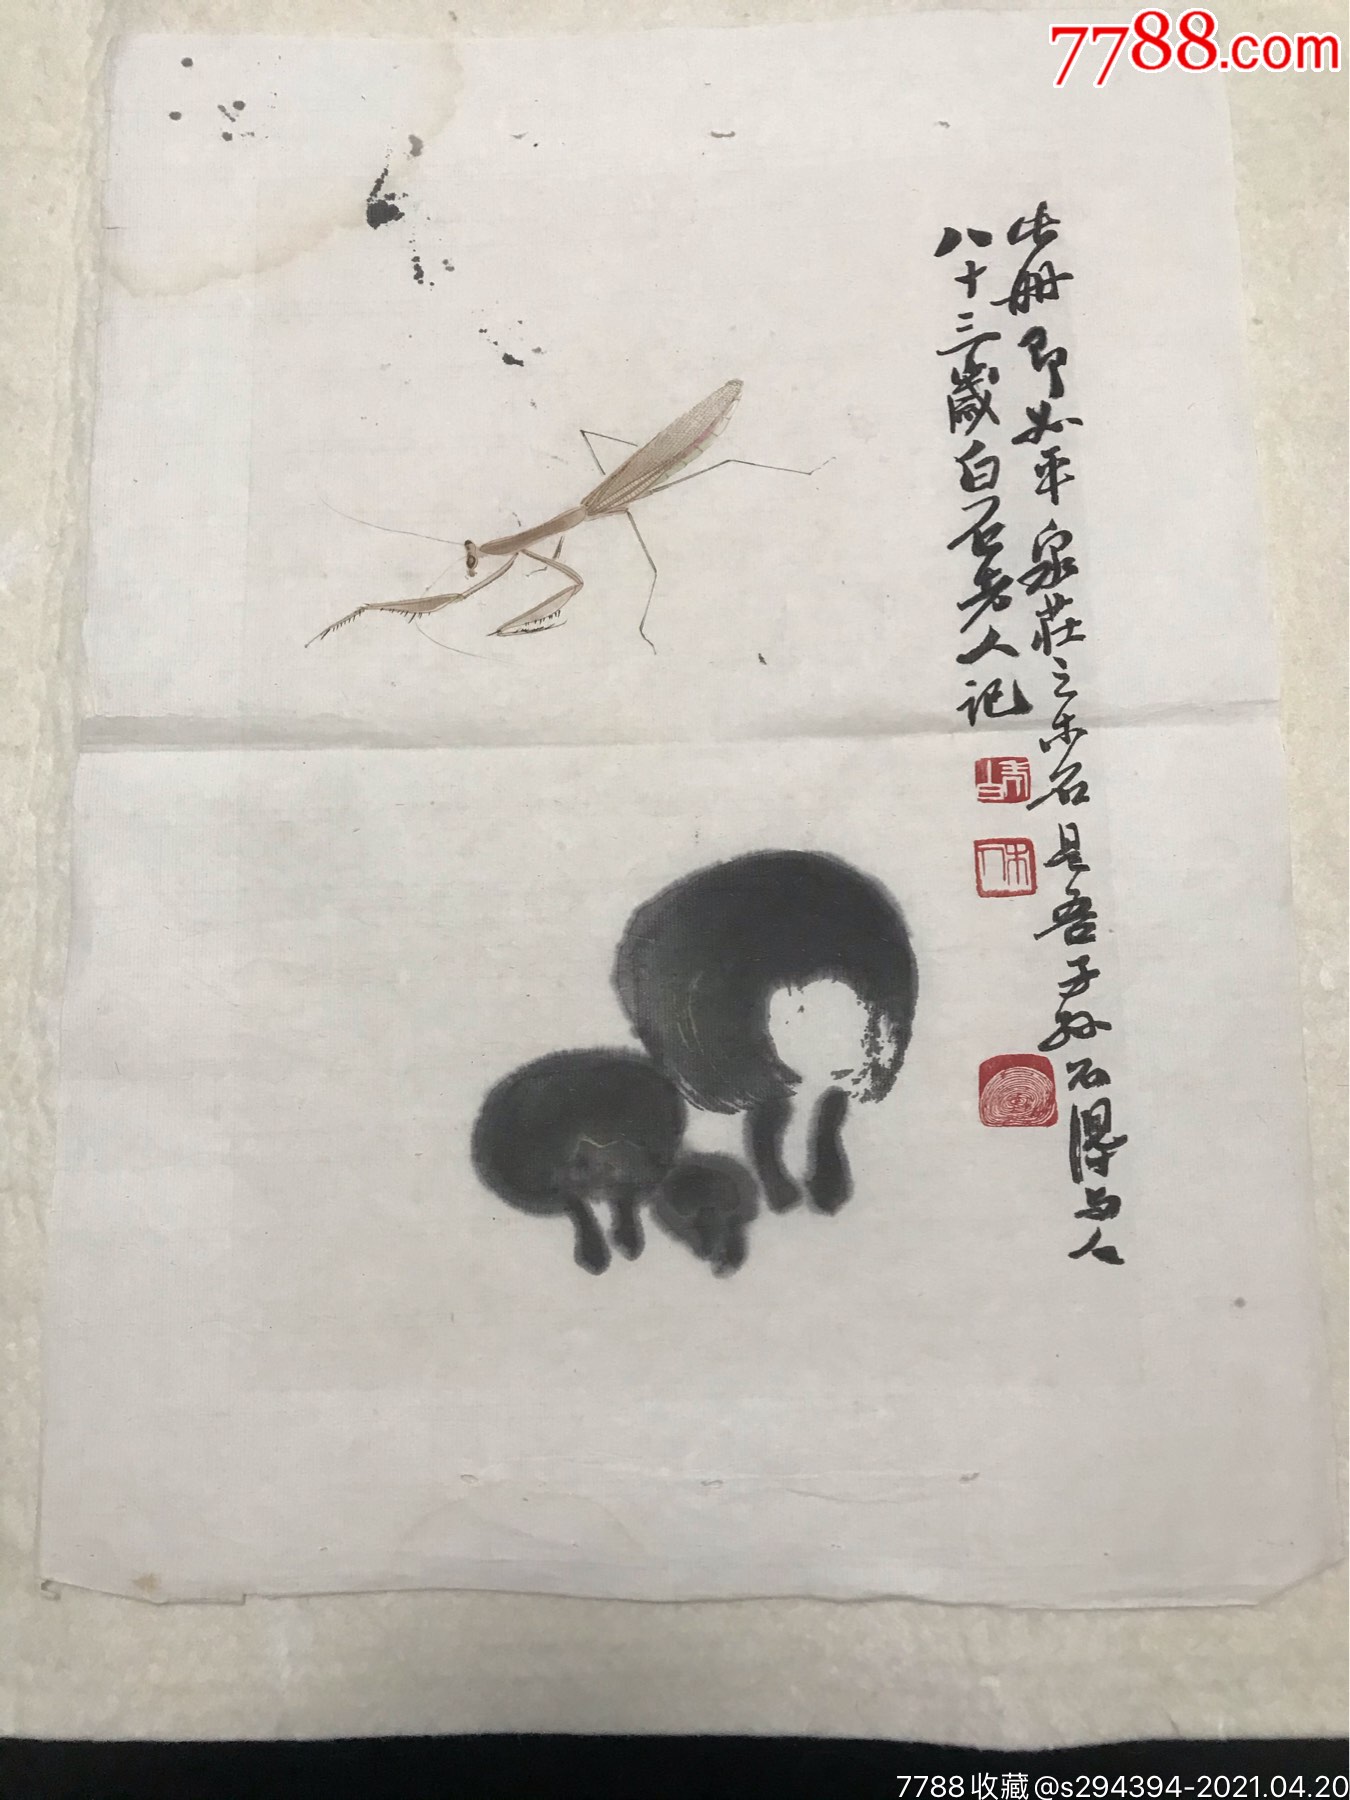 7788.com
此冊即如平泉莊之木石是吾子孫不得与人
八十三歲白石老人記
木人
7788收藏@s294394-2021.04.20